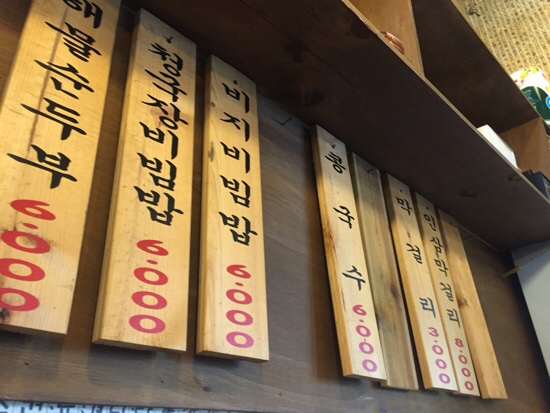 해물순두부 6.000
청국장비빔밥 6.000
비지비빔밥 6.000
콩국수 6.000
막걸리 3.000
인삼막걸리 8.000